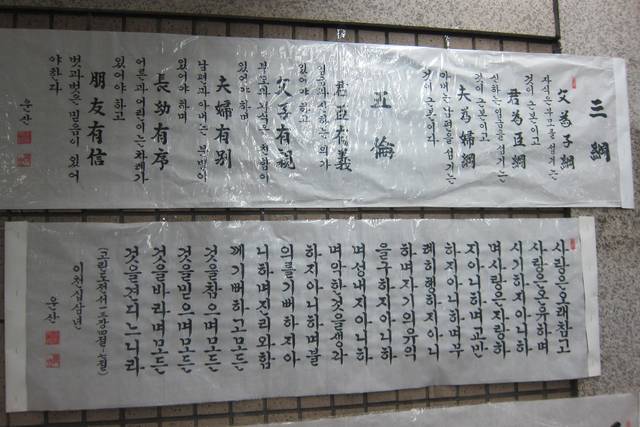 三綱
父爲子綱
자식은 부모를 섬기는
것이 근본이고
君爲臣綱
신하는 임금을 섬기는
것이 근본이고
夫爲婦綱
아내는 남편을 섬기는
것이 근본이다
五倫
君臣有義
임금과 신하는 의가
있어야 하고
父子有親
부모와 자식은 친함이
있어야 하며
夫婦有別
남편과 아내는 분별이
있어야 하며
長幼有序
어른과 어린이는 차례가
있어야 하고
朋友有信
벗과 벗은 믿음이 있어
야 한다
운산
사랑은오래참고
사랑은온유하며
시기하지아니하
며사랑은자랑하
지아니하며교만
하지아니하며무
례히행하지아니
하며자기의유익
을구하지아니하
며성내지아니하
며악한것을생각
하지아니하며불
의를기뻐하지아
니하며진리와함
께기뻐하고모든
것을참으며모든
것을믿으며모든
것을바라며모든
것을견디느니라
(고린도전서一三장四절~七절)
이천십삼년
운산